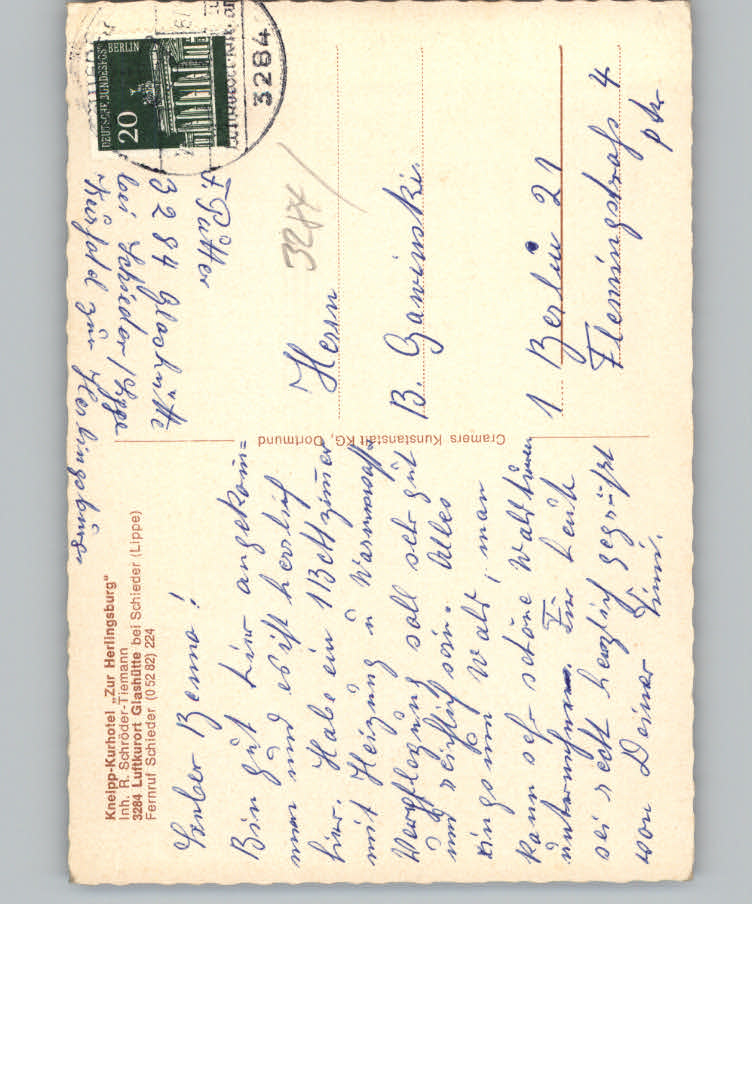 Kneipp-Kurhotel „Zur Herlingsburg"
Inh. R. Schröder-Tiemann
3284 Luftkurort Glashütte bei Schieder (Lippe)
Fernruf Schieder (0 52 82) 224
Lieber Benno!
Bin gut hier angekom=
men und es ist herrlich
hier. Habe ein 1 Bettzimmer
mit Heizung u Warmwasser
Verpflegung soll sehr gut
und reichlich sein. Alles
rings um Wald, man
kann sehr schöne Waldturen
unternehmen. Für heute
sei recht herzlich gegrüßt
von Deiner
Cramers Kunstanstalt KG, Dortmund
DEUTSCHE BUNDESPOST BERLIN
20
3284
F. Pütter
3284 Glashütte
bei Schieder/Lippe
Kurhotel zur Herlingsburg
3284/
Herrn
B. Gawinski
1 Berlin 21
Flemingstraße 4
ptr